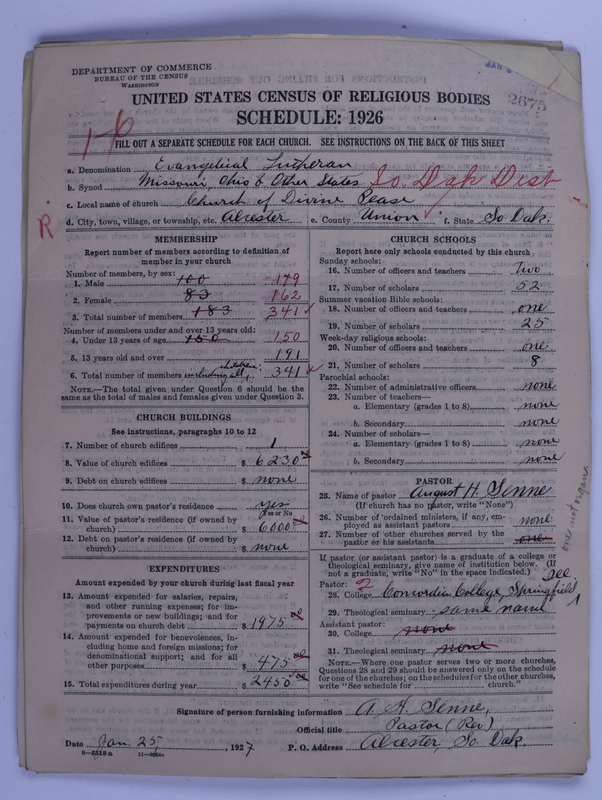 DEPARTMENT OF COMMERCE
BUREAU OF THE CENSUS
WASHINGTON
2675
UNITED STATES CENSUS OF RELIGIOUS BODIES
SCHEDULE: 1926
FILL OUT A SEPARATE SCHEDULE FOR EACH CHURCH. SEE INSTRUCTIONS ON THE BACK OF THIS SHEET
a. Denomination Evangelical Lutheran
b. Synod Missouri, Ohio & Other States So. Dak Dist
c. Local name of church Church of Divine Pease
d. City, town, village, or township, etc. Alcester e. County Union f. State So. Dak.
R
MEMBERSHIP
Report number of members according to definition of member in your church
Number of members, by sex:
1. Male 100 179
2. Female 83 162
3. Total number of members 183 341
Number of members under and over 13 years old:
4. Under 13 years of age 150 150
5. 13 years old and over 191
6. Total number of members including all children 341
NOTE.—The total given under Question 6 should be the same as the total of males and females given under Question 3.
CHURCH BUILDINGS
See instructions, paragraphs 10 to 12
7. Number of church edifices 1
8. Value of church edifices $ 6230 00
9. Debt on church edifices $ none
10. Does church own pastor's residence? yes
(Yes or No)
11. Value of pastor's residence (if owned by church) $ 6000
12. Debt on pastor's residence (if owned by church) $ none
EXPENDITURES
Amount expended by your church during last fiscal year
13. Amount expended for salaries, repairs, and other running expenses; for improvements or new buildings; and for payments on church debt $ 1975 00
14. Amount expended for benevolences, including home and foreign missions; for denominational support; and for all other purposes $ 475 00
15. Total expenditures during year $ 2450 00
CHURCH SCHOOLS
Report here only schools conducted by this church
Sunday schools:
16. Number of officers and teachers two
17. Number of scholars 52
Summer vacation Bible schools:
18. Number of officers and teachers one
19. Number of scholars 25
Week-day religious schools:
20. Number of officers and teachers one
21. Number of scholars 8
Parochial schools:
22. Number of administrative officers none
23. Number of teachers—
a. Elementary (grades 1 to 8) none
b. Secondary none
24. Number of scholars—
a. Elementary (grades 1 to 8) none
b. Secondary none
PASTOR
25. Name of pastor August H. Senne
(If church has no pastor, write "None")
26. Number of ordained ministers, if any, employed as assistant pastors none
27. Number of other churches served by the pastor or his assistants one
one not organ.
If pastor (or assistant pastor) is a graduate of a college or theological seminary, give name of institution below. (If not a graduate, write "No" in the space indicated.)
Pastor: 2
28. College Concordia College, Springfield Ill
29. Theological seminary same name
Assistant pastor:
30. College none
31. Theological seminary none
NOTE.—Where one pastor serves two or more churches, Questions 28 and 29 should be answered only on the schedule for one of the churches; on the schedules for the other churches, write "See schedule for church."
Signature of person furnishing information A. H. Senne,
Official title Pastor (Rev)
Date Jan. 25, 1927 P. O. Address Alcester, So. Dak.
8—5518a